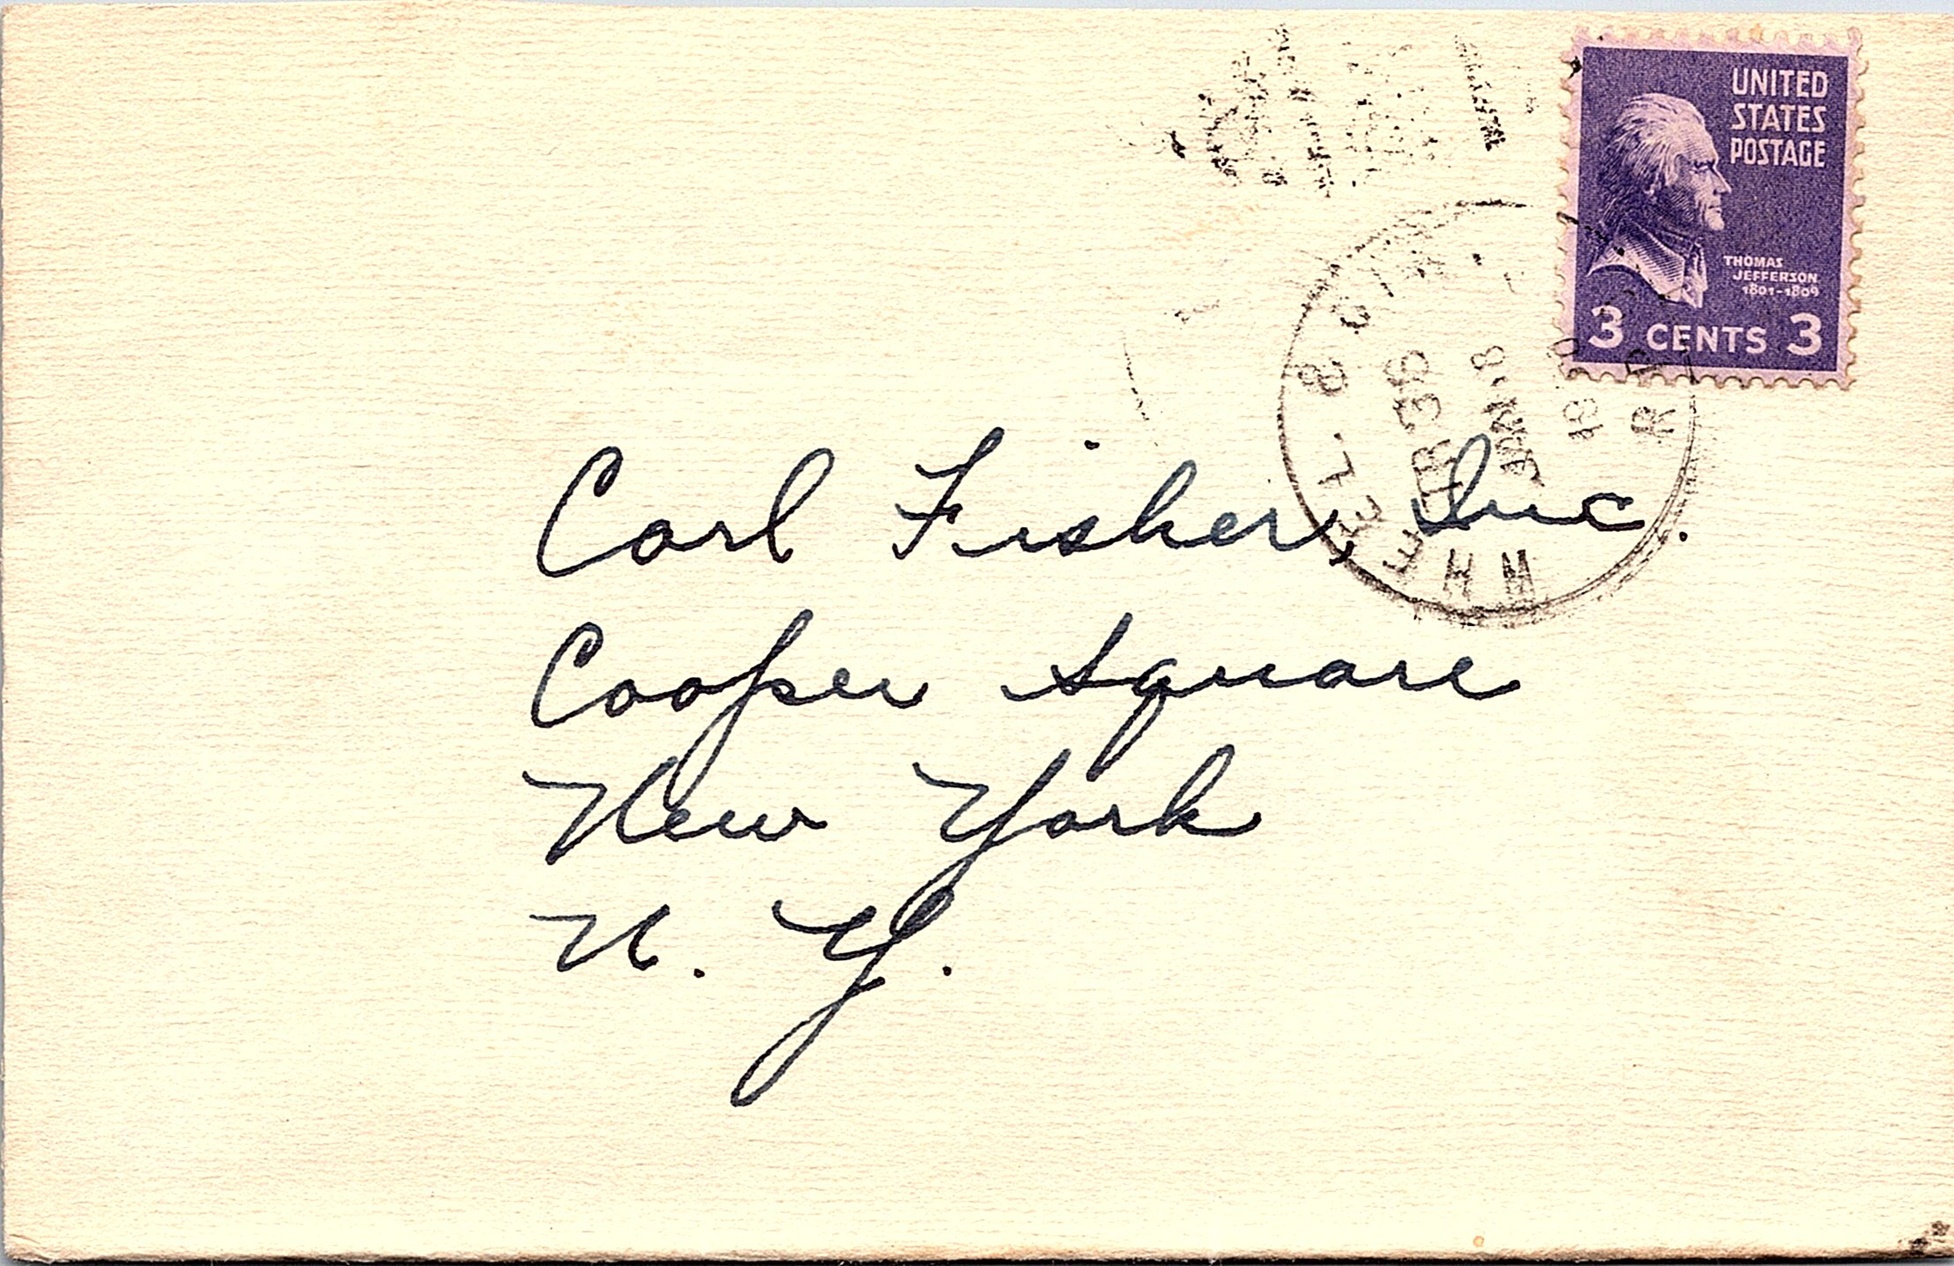 UNITED
STATES
POSTAGE
THOMAS
JEFFERSON
1801-1809
3 CENTS 3
TR 35
JAN 8
Carl Fisher, Inc.
Cooper Square
New York
N. Y.